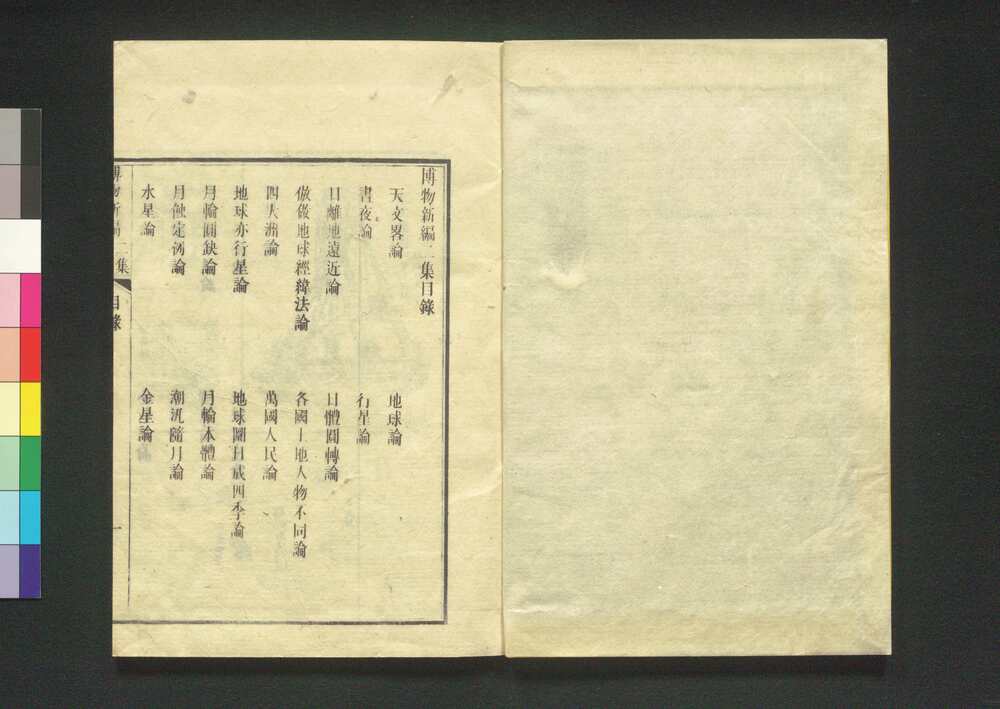 博物新編二集目錄
天文畧論
地球論
晝夜論
行星論
日離地遠近論
日體圜轉論
倣做地球經緯法論
各國土地人物不同論
四大洲論
萬國人民論
地球亦行星論
地球圜日成四季論
月輪圓缺論
月輪本體論
月蝕定例論
潮汛隨月論
水星論
金星論
博物新編二集
目錄
一